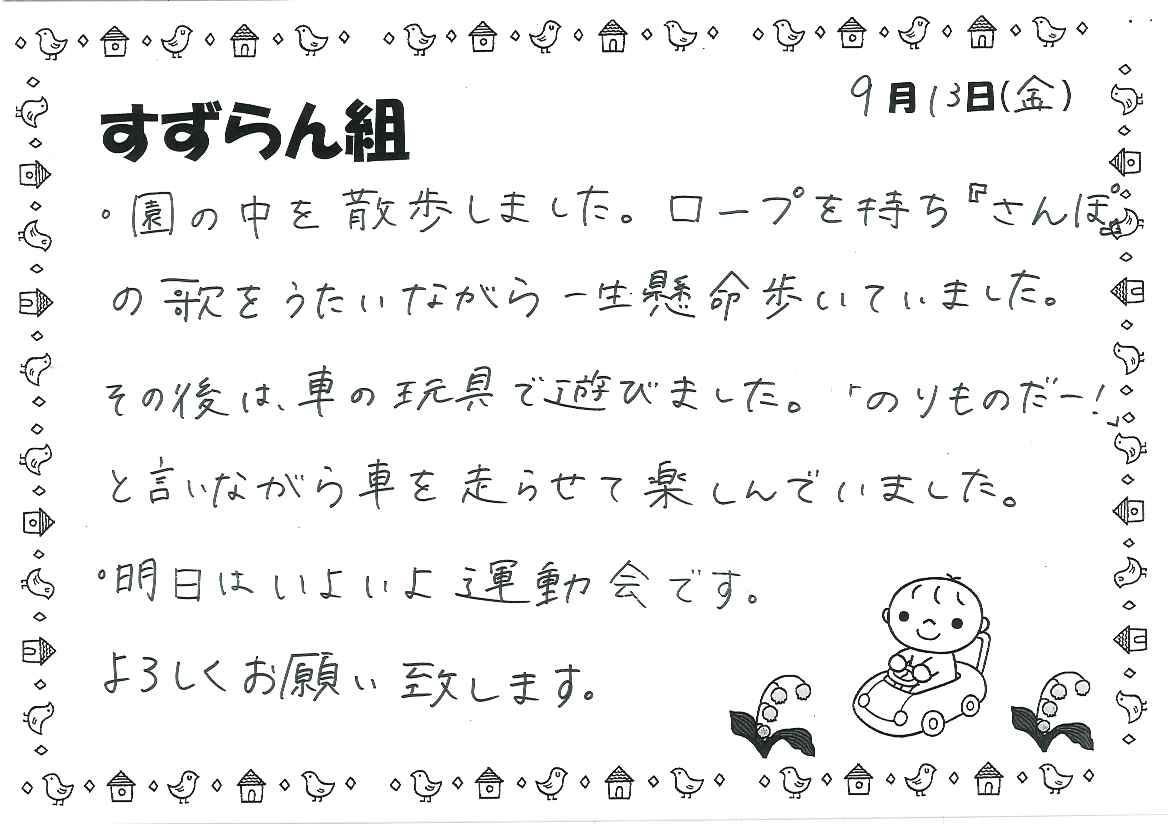 9月13日(金)
すずらん組
・園の中を散歩しました。ロープを持ち『さんぽ』
の歌をうたいながら一生懸命歩いていました。
その後は、車の玩具で遊びました。「のりものだー!」
と言いながら車を走らせて楽しんでいました。
・明日はいよいよ運動会です。
よろしくお願い致します。